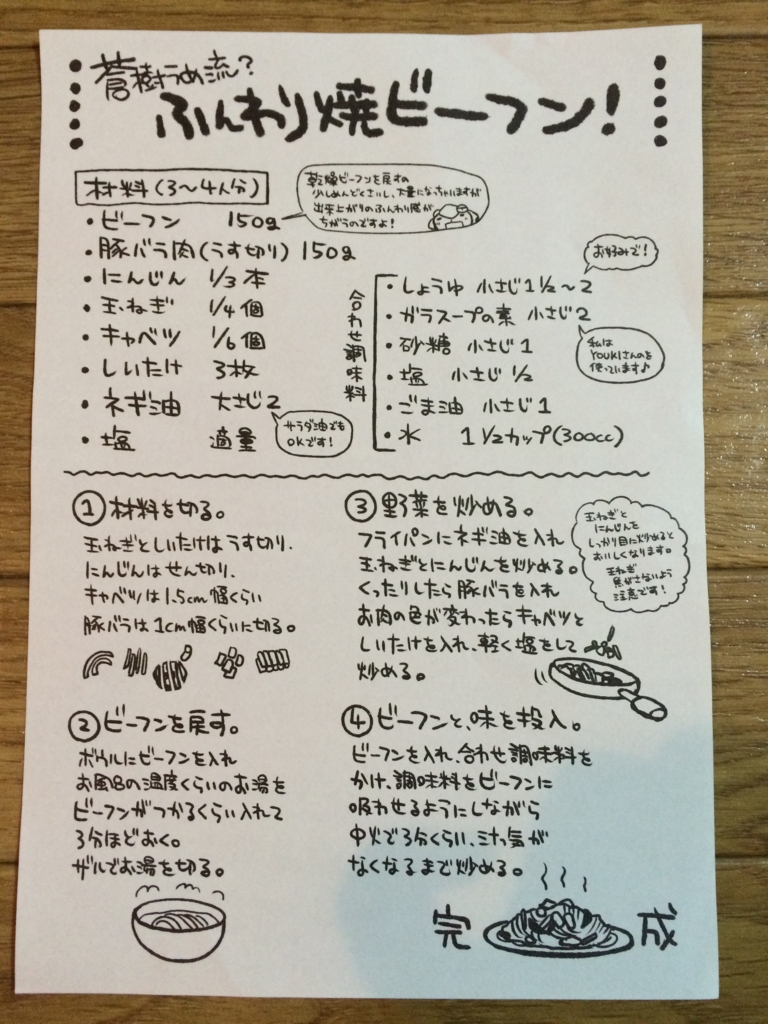 蒼樹うめ流?
ふんわり焼ビーフン!
材料(3〜4人分)
乾燥ビーフンを戻すの
少しめんどくさいし、大量になっちゃいますが
出来上がりのふんわり感が
ちがうのですよ!
・ビーフン 150g
・豚バラ肉(うす切り) 150g
・にんじん 1/3本
・玉ねぎ 1/4個
・キャベツ 1/6個
・しいたけ 3枚
・ネギ油 大さじ2
サラダ油でも
OKです!
・塩 適量
合わせ調味料
お好みで!
・しょうゆ 小さじ1 1/2〜2
・ガラスープの素 小さじ2
私は
YOUKIさんのを
使っています♪
・砂糖 小さじ1
・塩 小さじ1/2
・ごま油 小さじ1
・水 1 1/2カップ(300cc)
① 材料を切る。
玉ねぎとしいたけはうす切り、
にんじんはせん切り、
キャベツは1.5cm幅くらい
豚バラは1cm幅くらいに切る。
② ビーフンを戻す。
ボウルにビーフンを入れ
お風呂の温度くらいのお湯を
ビーフンがつかるくらい入れて
3分ほどおく。
ザルでお湯を切る。
③ 野菜を炒める。
フライパンにネギ油を入れ
玉ねぎとにんじんを炒める。
くったりしたら豚バラを入れ
お肉の色が変わったらキャベツと
しいたけを入れ、軽く塩をして
炒める。
玉ねぎと
にんじんを
しっかり目に炒めると
おいしくなります。
玉ねぎ
焦がさないよう
注意です!
④ ビーフンと、味を投入。
ビーフンを入れ、合わせ調味料を
かけ、調味料をビーフンに
吸わせるようにしながら
中火で3分くらい、汁っ気が
なくなるまで炒める。
完成